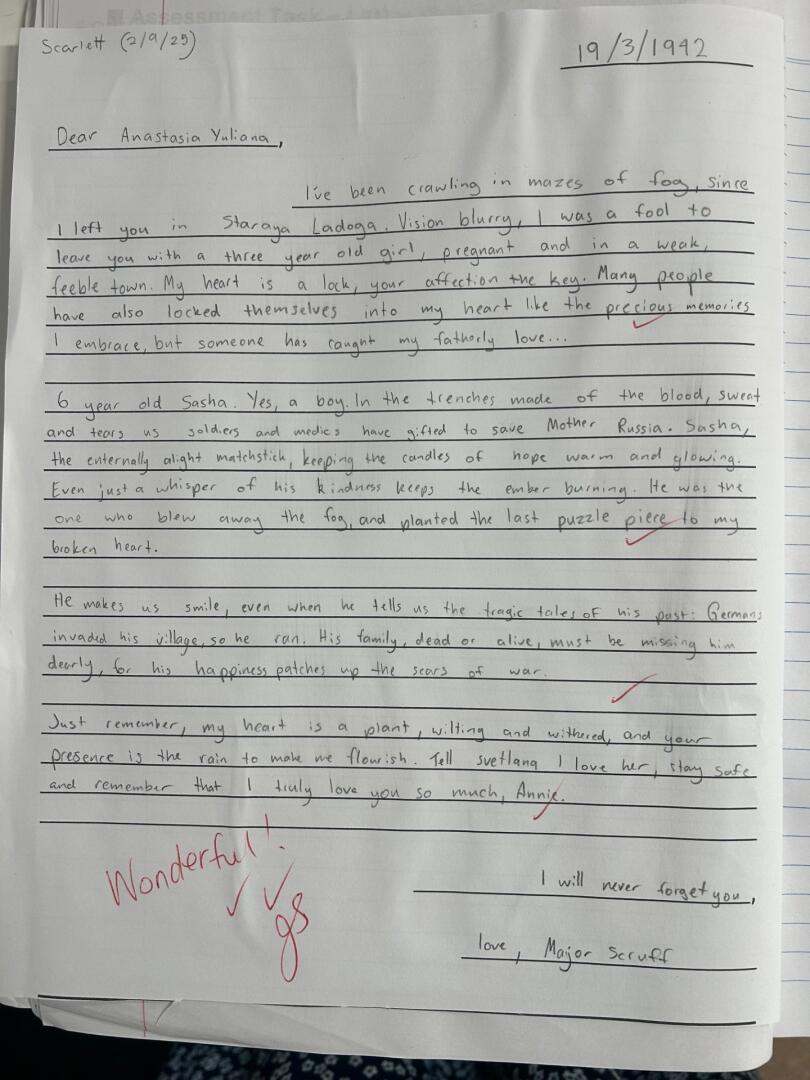 Assessment Task
Scarlett (2/9/25)
19/3/1942
Dear Anastasia Yuliana,
I've been crawling in mazes of fog, since
I left you in Staraya Ladoga. Vision blurry, I was a fool to
leave you with a three year old girl, pregnant and in a weak,
feeble town. My heart is a lock, your affection the key. Many people
have also locked themselves into my heart like the precious memories
I embrace, but someone has caught my fatherly love...
6 year old Sasha. Yes, a boy. In the trenches made of the blood, sweat
and tears us soldiers and medics have gifted to save Mother Russia. Sasha,
the enternally alight matchstick, keeping the candles of hope warm and glowing.
Even just a whisper of his kindness keeps the ember burning. He was the
one who blew away the fog, and planted the last puzzle piece to my
broken heart.
He makes us smile, even when he tells us the tragic tales of his past: Germans
invaded his village, so he ran. His family, dead or alive, must be missing him
dearly, for his happiness patches up the scars of war.
Just remember, my heart is a plant, wilting and withered, and your
presence is the rain to make me flowish. Tell svetlana I love her, stay safe
and remember that I truly love you so much, Annie.
Wonderful!
gs
I will never forget you,
love, Major Scruff